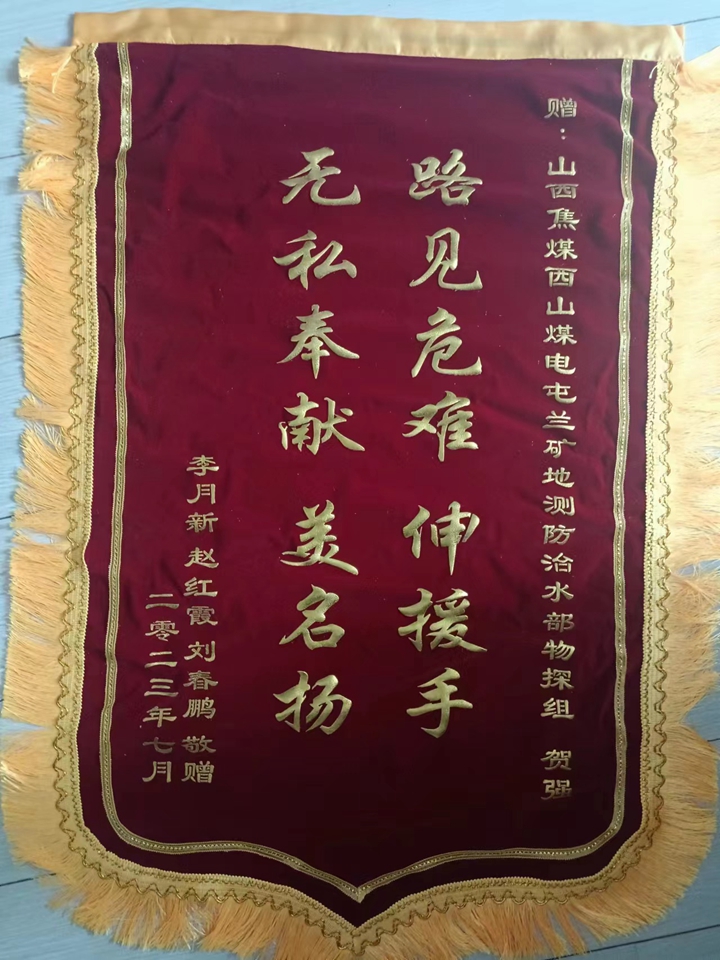 赠：山西焦煤西山煤电屯兰矿地测防治水部物探组 贺强
路见危难 伸援手
无私奉献 美名扬
李月新 赵红霞 刘春鹏 敬赠
二零二三年七月